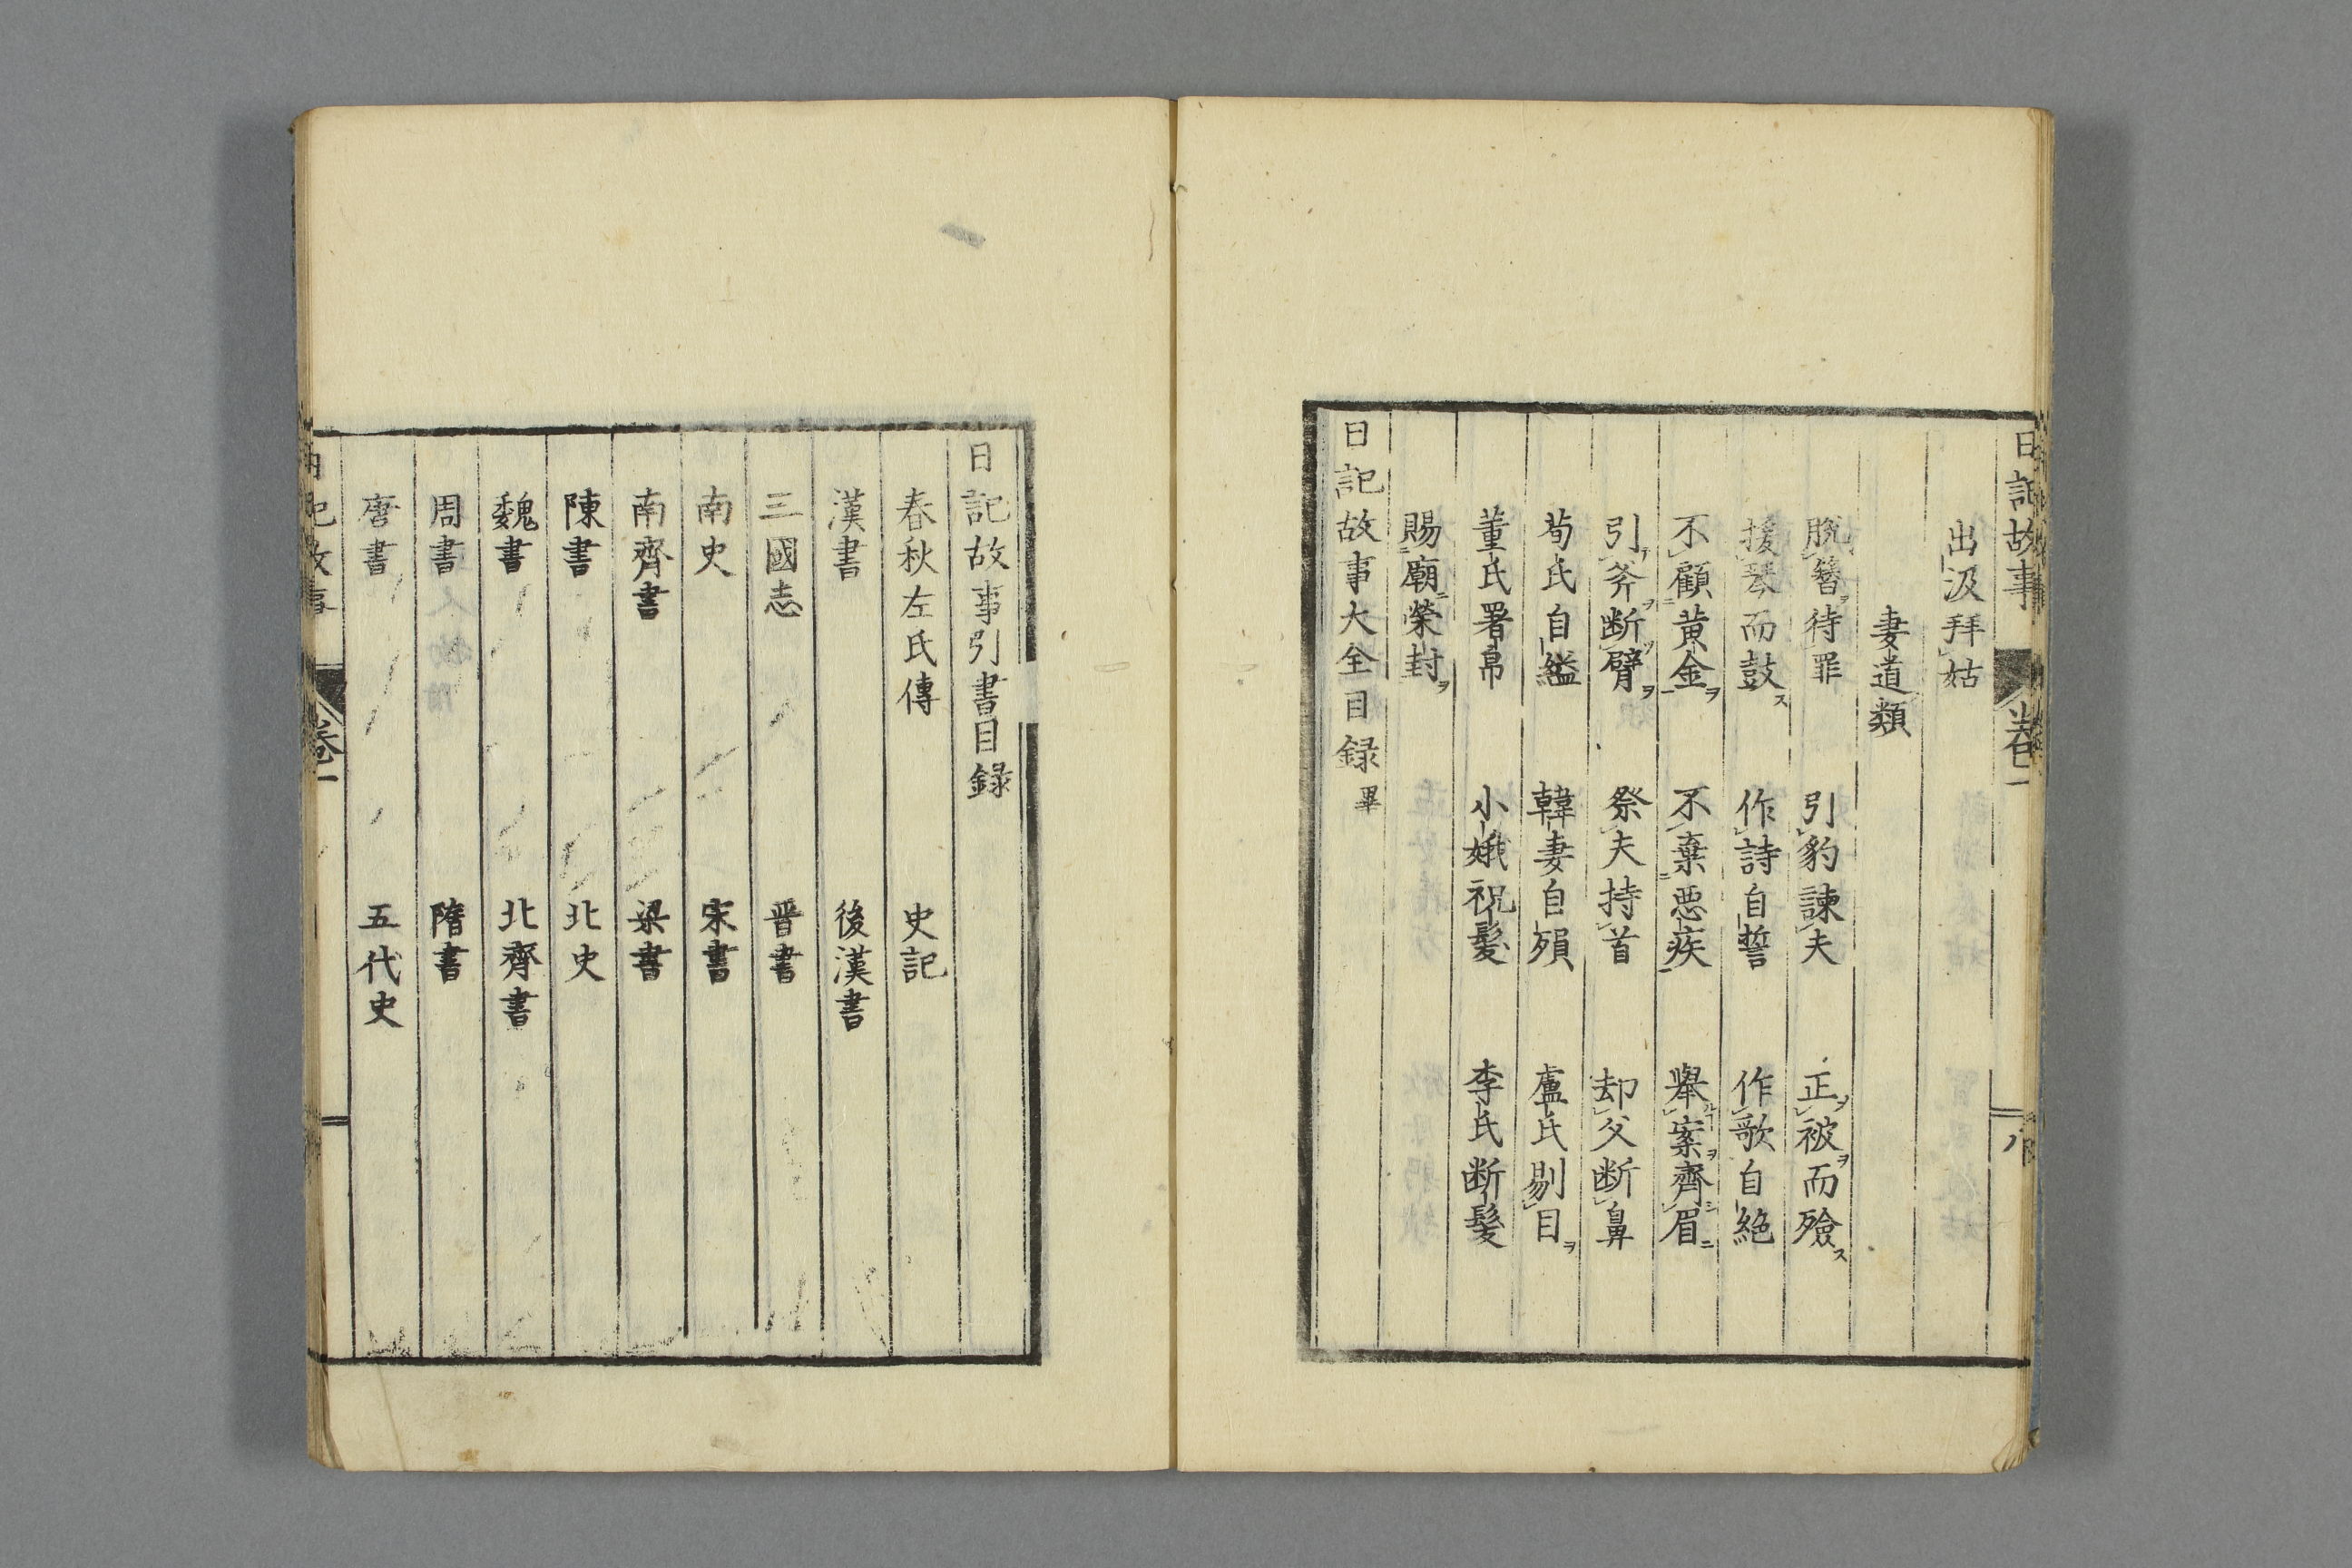 日記故事　卷一　八
出汲拜姑
妻道類
脫簪ヲ待罪　引豹諫夫　正被ヲ而殮ス
援琴而鼓ス　作詩自誓　作歌自絶
不顧黄金ヲ　不棄惡疾　舉案ヲ齊シ眉ニ
引斧ヲ断臂ヲ　祭夫持首　却父断鼻
荀氏自縊　韓妻自殞　盧氏剔目ヲ
董氏署帛　小娥祝髮　李氏断髮
賜廟ニ榮封ヲ
日記故事大全目録畢
日記故事引書目録
春秋左氏傳　史記
漢書　後漢書
三國志　晋書
南史　宋書
南齊書　梁書
陳書　北史
魏書　北齊書
周書　隋書
唐書　五代史
日記故事　卷一